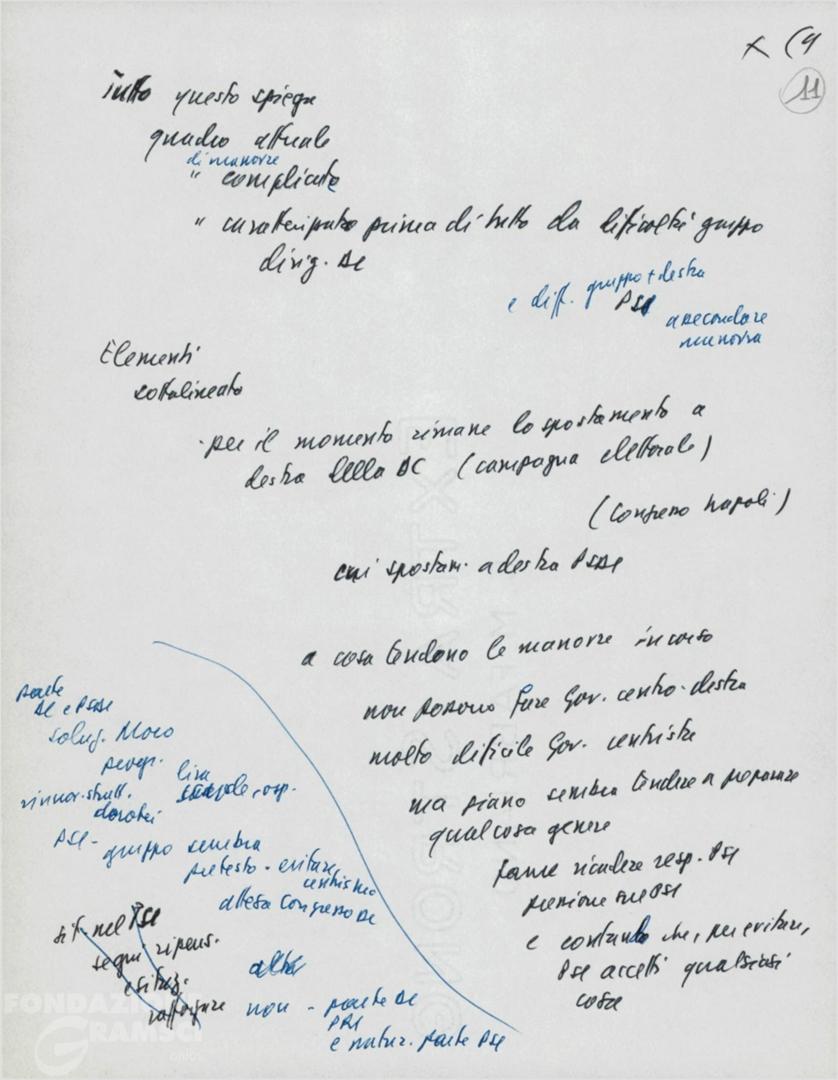 x (4
11
tutto questo spiega
quadro attuale
di manovre
" complicate
" caratterizzato prima di tutto da dificoltà gruppo
dirig. DC
e diff. gruppo + destra
PSI
a secondare
manovra
Elementi
sottolineato
- per il momento rimane lo spostamento a
destra della DC (campagna elettorale)
(Congresso Napoli)
cui spostam. a destra PSDI
a cosa tendono le manovre in corso
non possono fare Gov. centro-destra
molto dificile Gov. centrista
ma piano sembra tendere a preparare
qualcosa genere
farne ricadere resp. PSI
pressione sul PSI
e contando che, per evitare,
PSI accetti qualsiasi
cosa
parte
DC e PSDI
soluz. Moro
lira
rinnov. strutt.
dorotei
PSI - gruppo sembra
pretesto - evitare
centrismo
attesa Congresso DC
sit. nel PSI
segni ripens.
esitaz.
rafforzare
altri
non - parte DC
PRI
e natur. parte PSI
FONDAZIONE
GRAMSCI
onlus